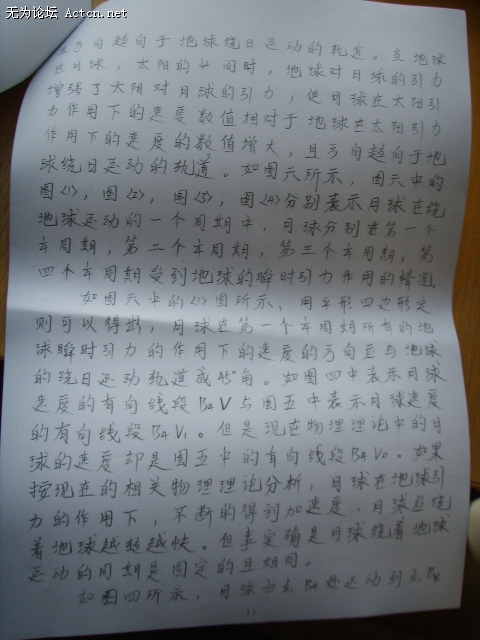 无为论坛 Actcn.net
且方向趋向于地球绕日运动的轨道。当地球
在月球，太阳的中间时，地球对月球的引力
增强了太阳对月球的引力，使月球在太阳引
力作用下的速度数值相对于地球在太阳引力
作用下的速度的数值增大，且方向趋向于地
球绕日运动的轨道。如图六所示，图六中的
图<1>，图<2>，图<3>，图<4>分别表示月球在绕
地球运动的一个周期中，月球分别在第一个
半周期，第二个半周期，第三个半周期，第
四个半周期受到地球的瞬时引力作用的情况
如图六中的<1>图所示，用平形四边形定
则可以得出，月球在第一个半周期所有的地
球瞬时引力的作用下的速度的方向应与地球
的绕日运动轨道成45°角。如图四中表示月球
速度的有向线段B4V与图五中表示月球速度
的有向线段B4V1。但是现在物理理论中的月
球的速度却是图五中的有向线段B4V0。如果
按现在的相关物理理论分析，月球在地球引
力的作用下，不断的得到加速度，月球应绕
着地球越越越快。但事实确是月球绕着地球
运动的周期是固定的且相同。
如图四所示，月球由点B4处运动到点
11